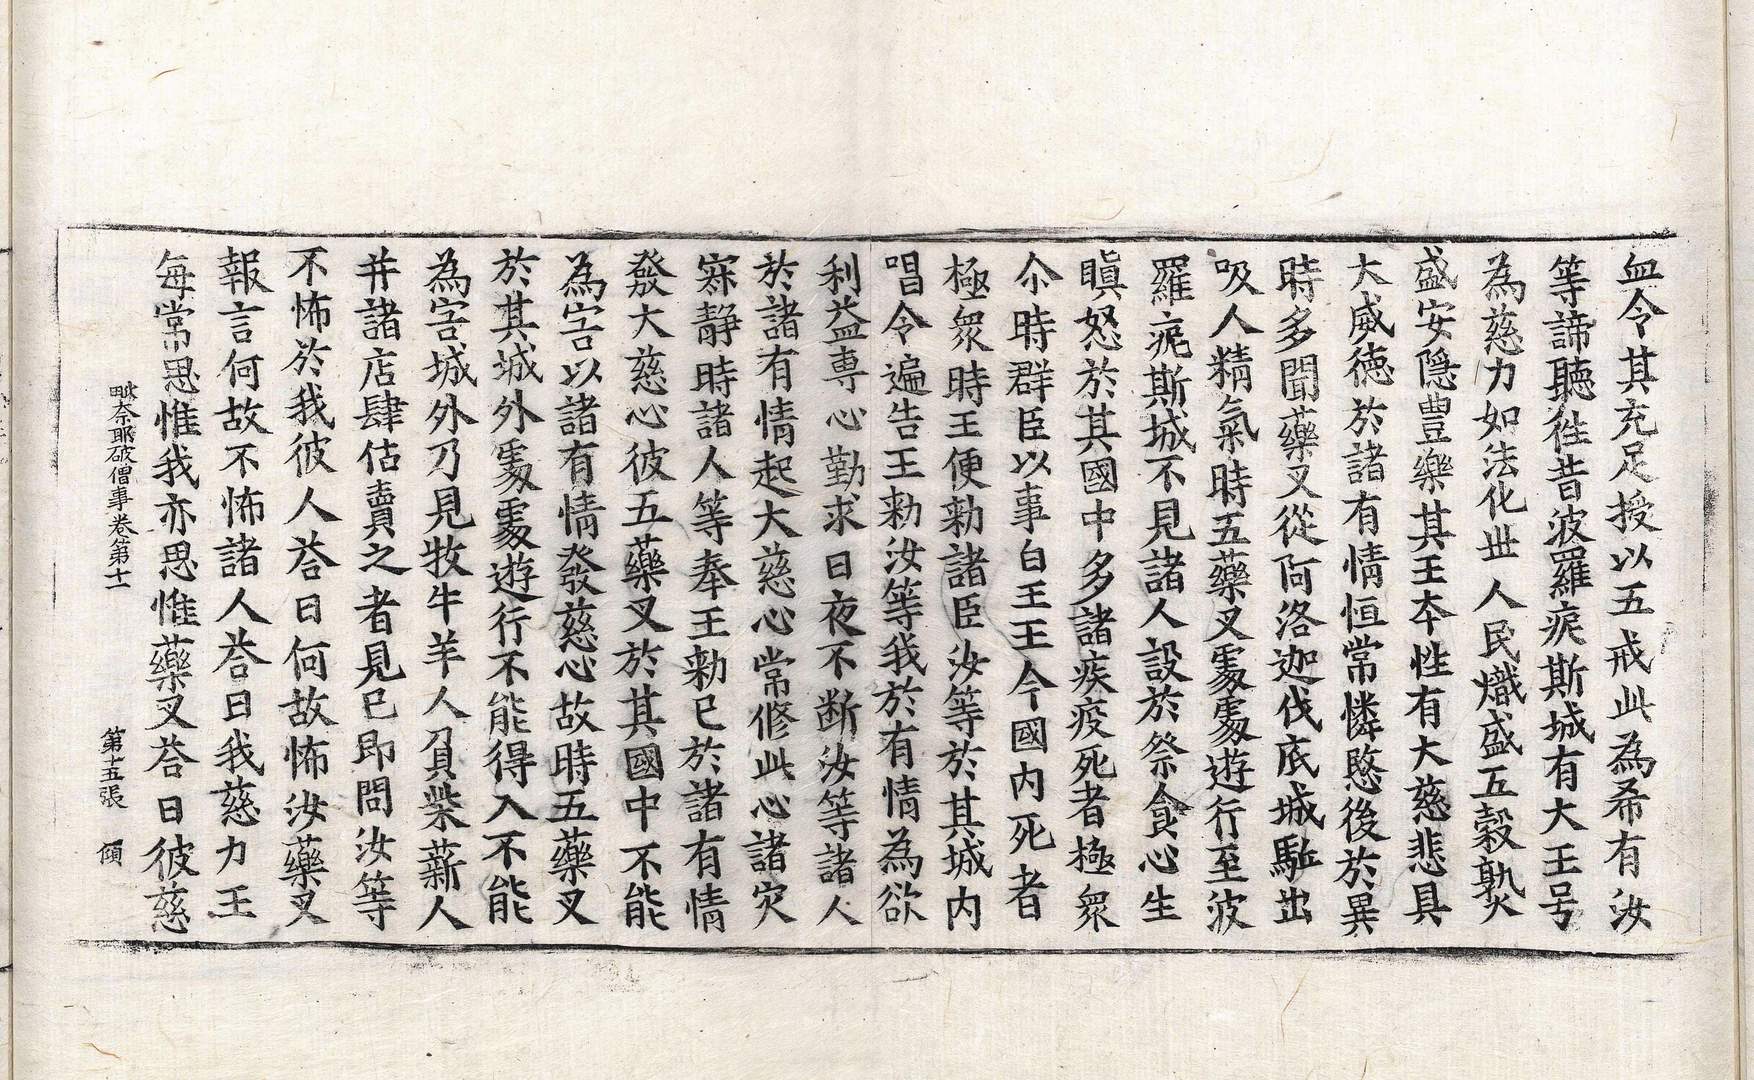 血令其充足授以五戒此為希有汝
等諦聽徃昔波羅痆斯城有大王号
為慈力如法化世人民熾盛五穀熟
盛安隱豊樂其王夲性有大慈悲具
大威德於諸有情恒常憐愍後於異
時多聞藥叉從阿洛迦伐底城駈出
吸人精氣時五藥叉䖏䖏遊行至波
羅痆斯城不見諸人設於祭食心生
瞋怒於其國中多諸疾疫死者極衆
尒時群臣以事白王王今國内死者
極衆時王便勑諸臣汝等於其城内
唱令遍告王勑汝等我於有情為欲
利益専心勤求日夜不断汝等諸人
於諸有情起大慈心常修此心諸灾
寂靜時諸人等奉王勑已於諸有情
發大慈心彼五藥叉於其國中不能
為害以諸有情發慈心故時五藥叉
於其城外䖏䖏遊行不能得入不能
為害城外乃見牧牛羊人負柴薪人
并諸店肆估賣之者見已即問汝等
不怖於我彼人荅曰何故怖汝藥叉
報言何故不怖諸人荅曰我慈力王
每常思惟我亦思惟藥叉荅曰彼慈
毗奈耶破僧事卷第十一　第十五張　傾